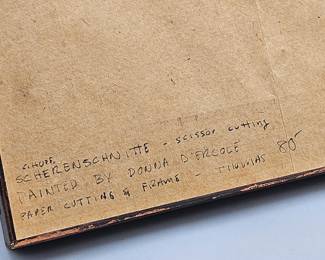 SCHERENSCHNITTE - scissor cutting
PAINTED BY DONNA D'ERCOLE
PAPER CUTTING & FRAME - THOMAS 80-